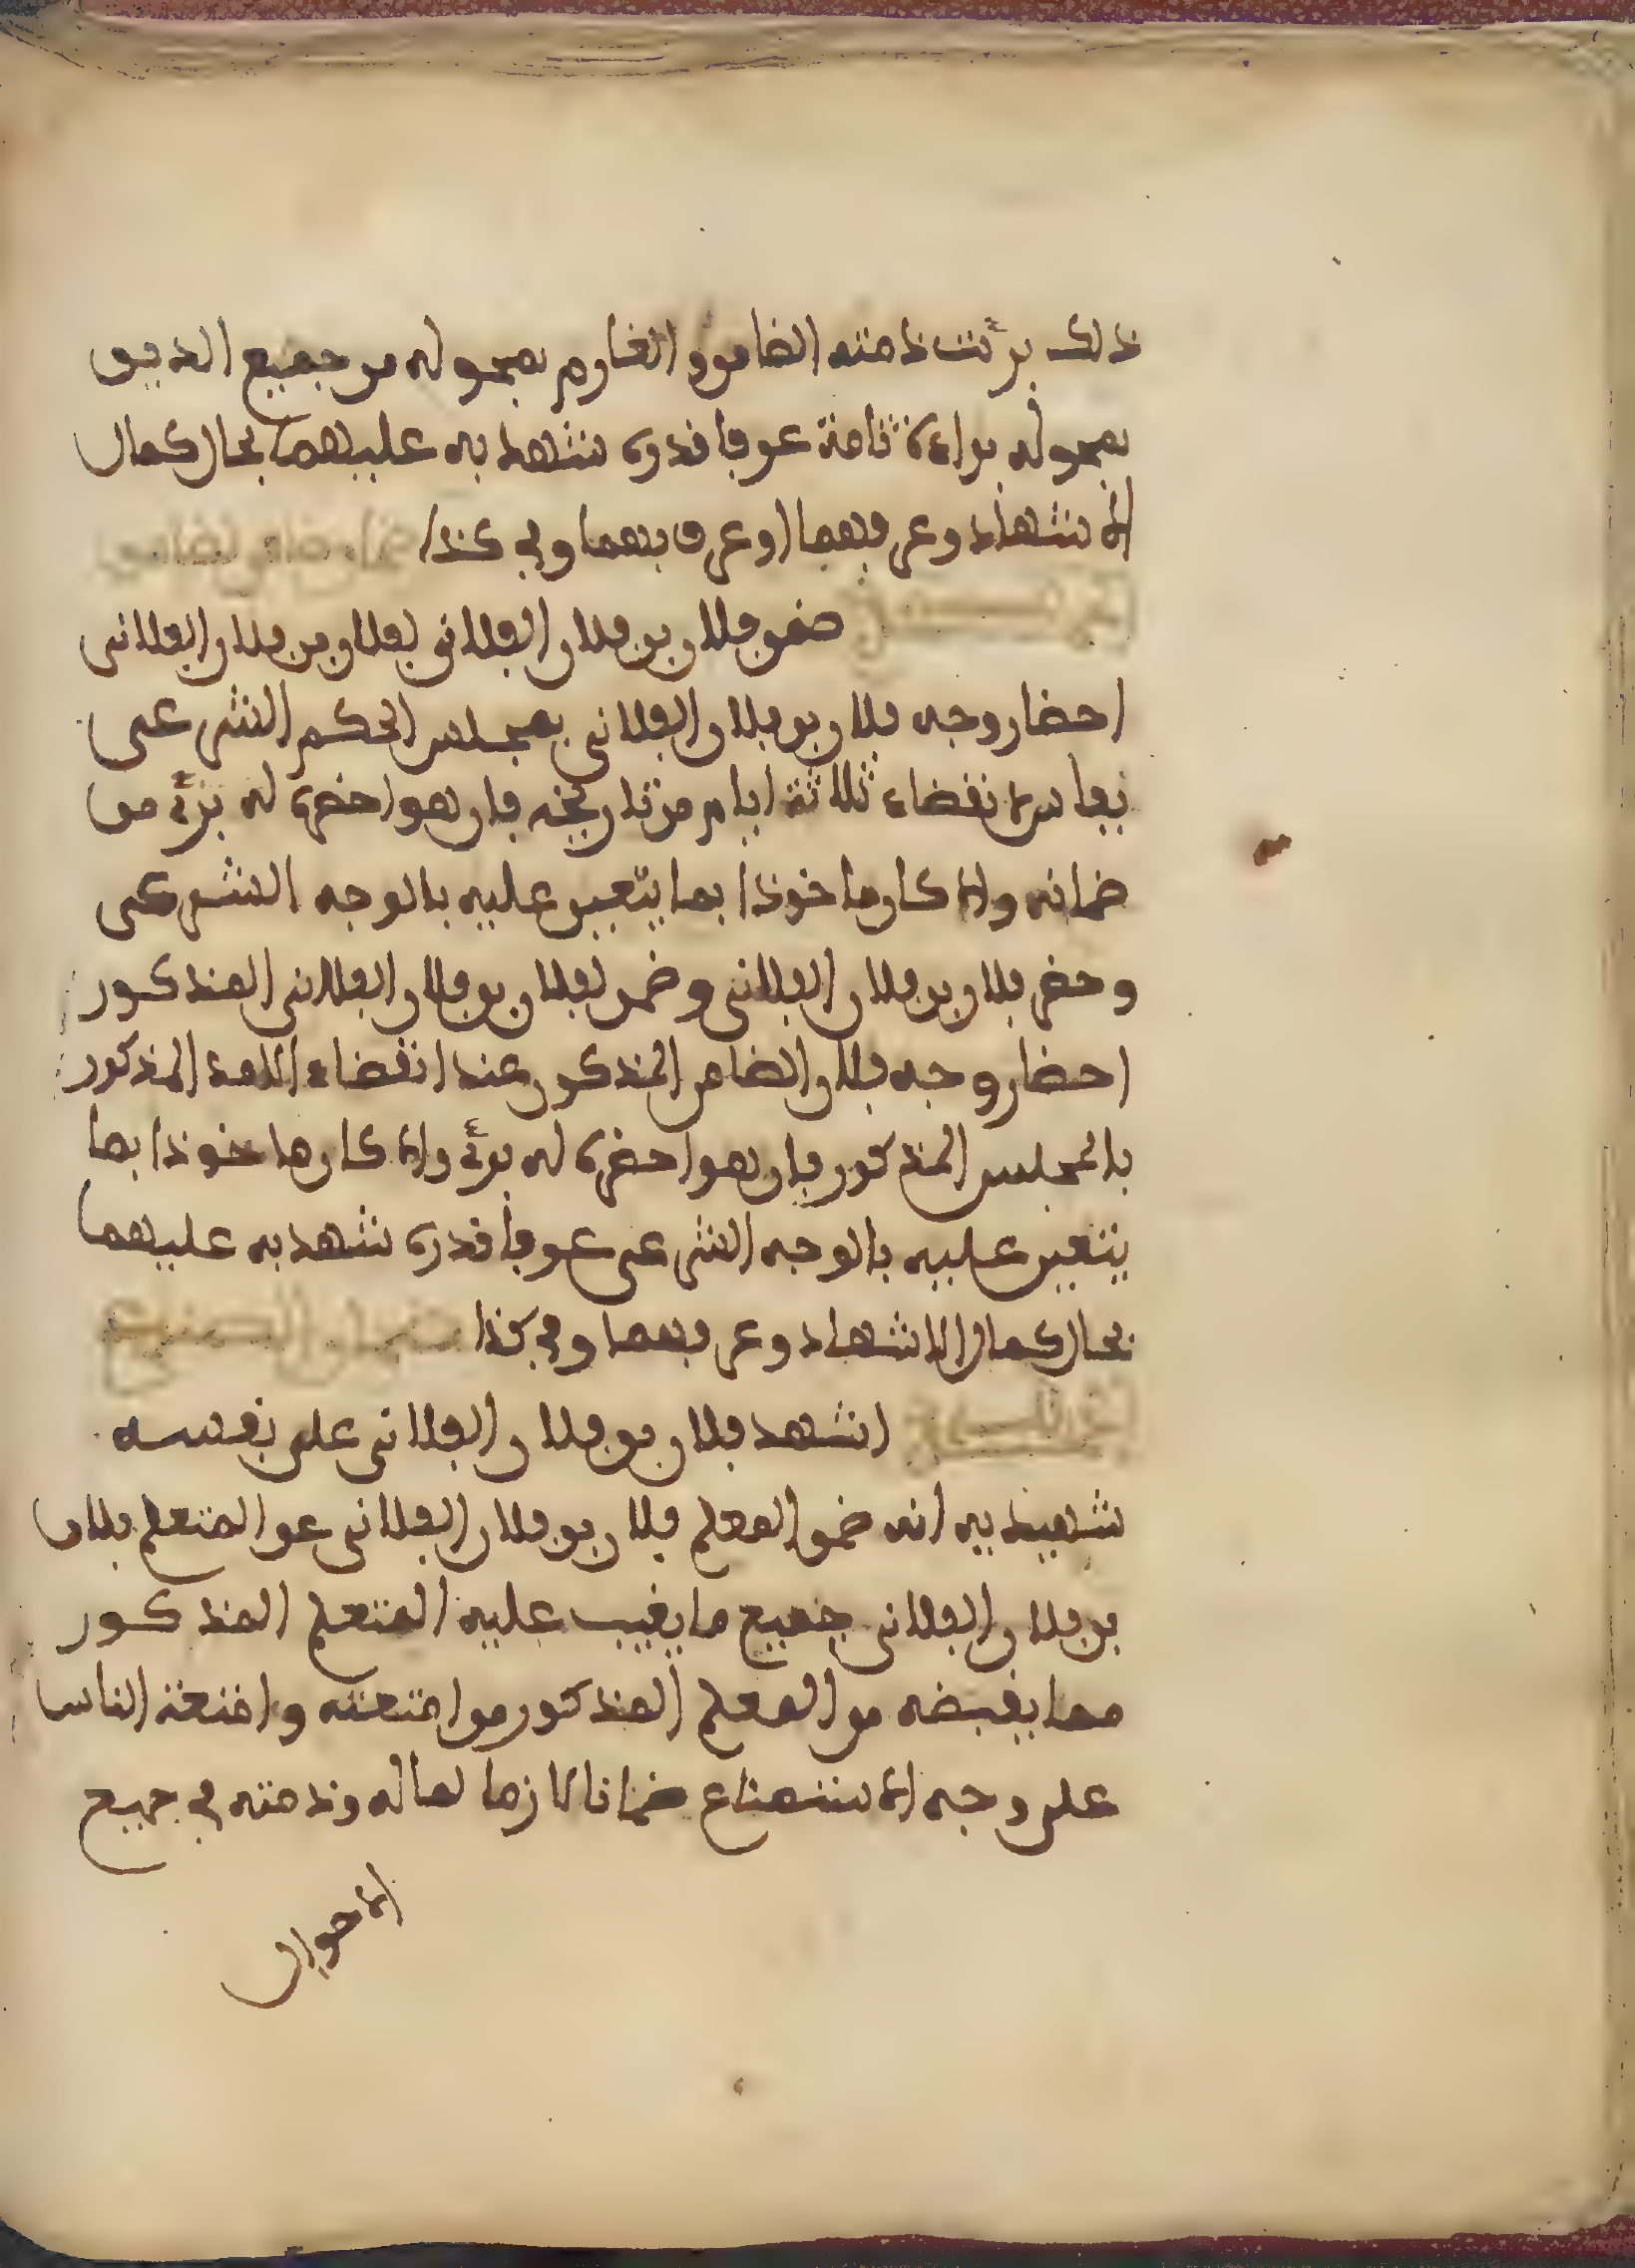 ذلك برئت ذمته الضامن والغارم بمجوله من جميع الدين
بمجوله براءة تامة عرفا قدره شهد به عليهما بحال كمال
الاشهاد وعرفهما او عرف بهما وفي كذا ضمان ضامن لضامن
ضمن فلان بن فلان الفلاني لفلان بن فلان الفلاني
احضار وجه فلان بن فلان الفلاني بمجلس الحكم الشرعي
بفاس لانقضاء ثلاثة ايام من تاريخه فان هو احضره له برئ من
ضمانه والا كان ماخوذا بما يتعين عليه بالوجه الشرعي
وحضر فلان بن فلان الفلاني وضمن لفلان بن فلان الفلاني المذكور
احضار وجه فلان الضامن المذكور عند انقضاء الامد المذكور
بالمجلس المذكور فان هو احضره له برئ والا كان ماخوذا بما
يتعين عليه بالوجه الشرعي عرفا قدره شهد به عليهما
بحال كمال الاشهاد وعرفهما وفي كذا ضمان الصنيع
اشهد فلان بن فلان الفلاني على نفسه
شهيديه انه ضمن المعلم فلان بن فلان الفلاني عن المتعلم فلان
بن فلان الفلاني جميع ما يغيب عليه المتعلم المذكور
مما يقبضه من المعلم المذكور من امتعته وامتعة الناس
على وجه الاستصناع ضمانا لازما لماله وذمته في جميع
الاحوال